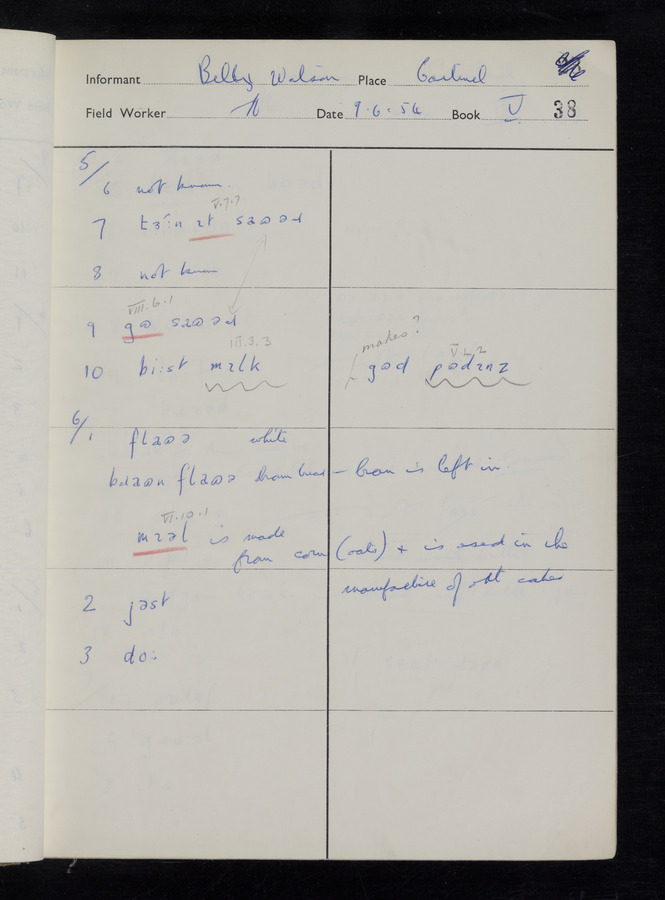 Informant Betty Watson Place Cartmel
Field Worker Date 9.6.54 Book V 38
5/
6 not known.
V.7.7
7 saʊəɹ
8 not known
VIII.6.1
9 gɑʊ saʊəɹ
III.3.3
10 bi:st mɪlk
makes? V L.2
gʊd pʊdɪnz
6/
1 flaʊə white
bɹaʊn flaʊə brown bread – bran is left in.
VI.10.1
mɪəl is made
from corn (oats) + is used in the
manufacture of oat cakes
2 jəst
3 do: